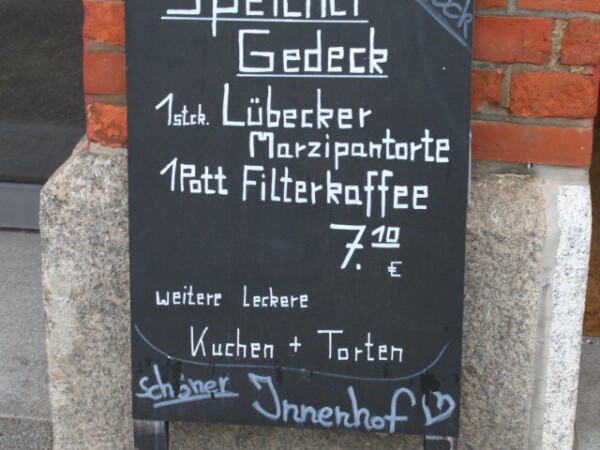 Speicher
Gedeck
1 stck. Lübecker
Marzipantorte
1 Pott Filterkaffee
7.10
€
weitere leckere
Kuchen + Torten
schöner Innenhof